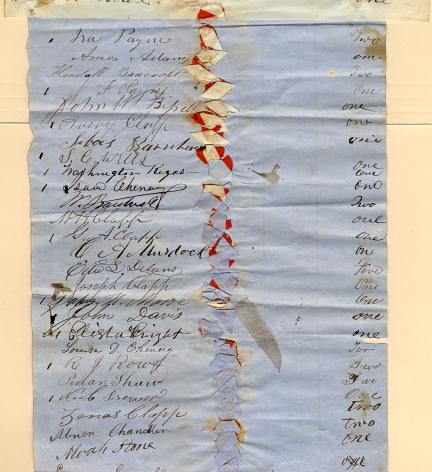 one
1 Ira Payne Two
Amos Adams one
Kendall Bancroft Two
1 F. Payne One
John W. Bissell one
1 Avery Clapp one
Silas Burnham one
1 S. C. Wells one
1 Washington Keyes One
1 Isaac Chenery one
Two
Clapp one
1 G. A. Clapp One
C. A. Murdock one
Edw D. Delano Five
Joseph Clapp One
1 One
John Davis one
1 Elisha Wright one
Louisa D. Chenery Two
1 R. J. Rowe Two
Shaw Two
1 Brewer One
Zenas Clapp Two
Abner Chandler Two
Noah Stone one
one